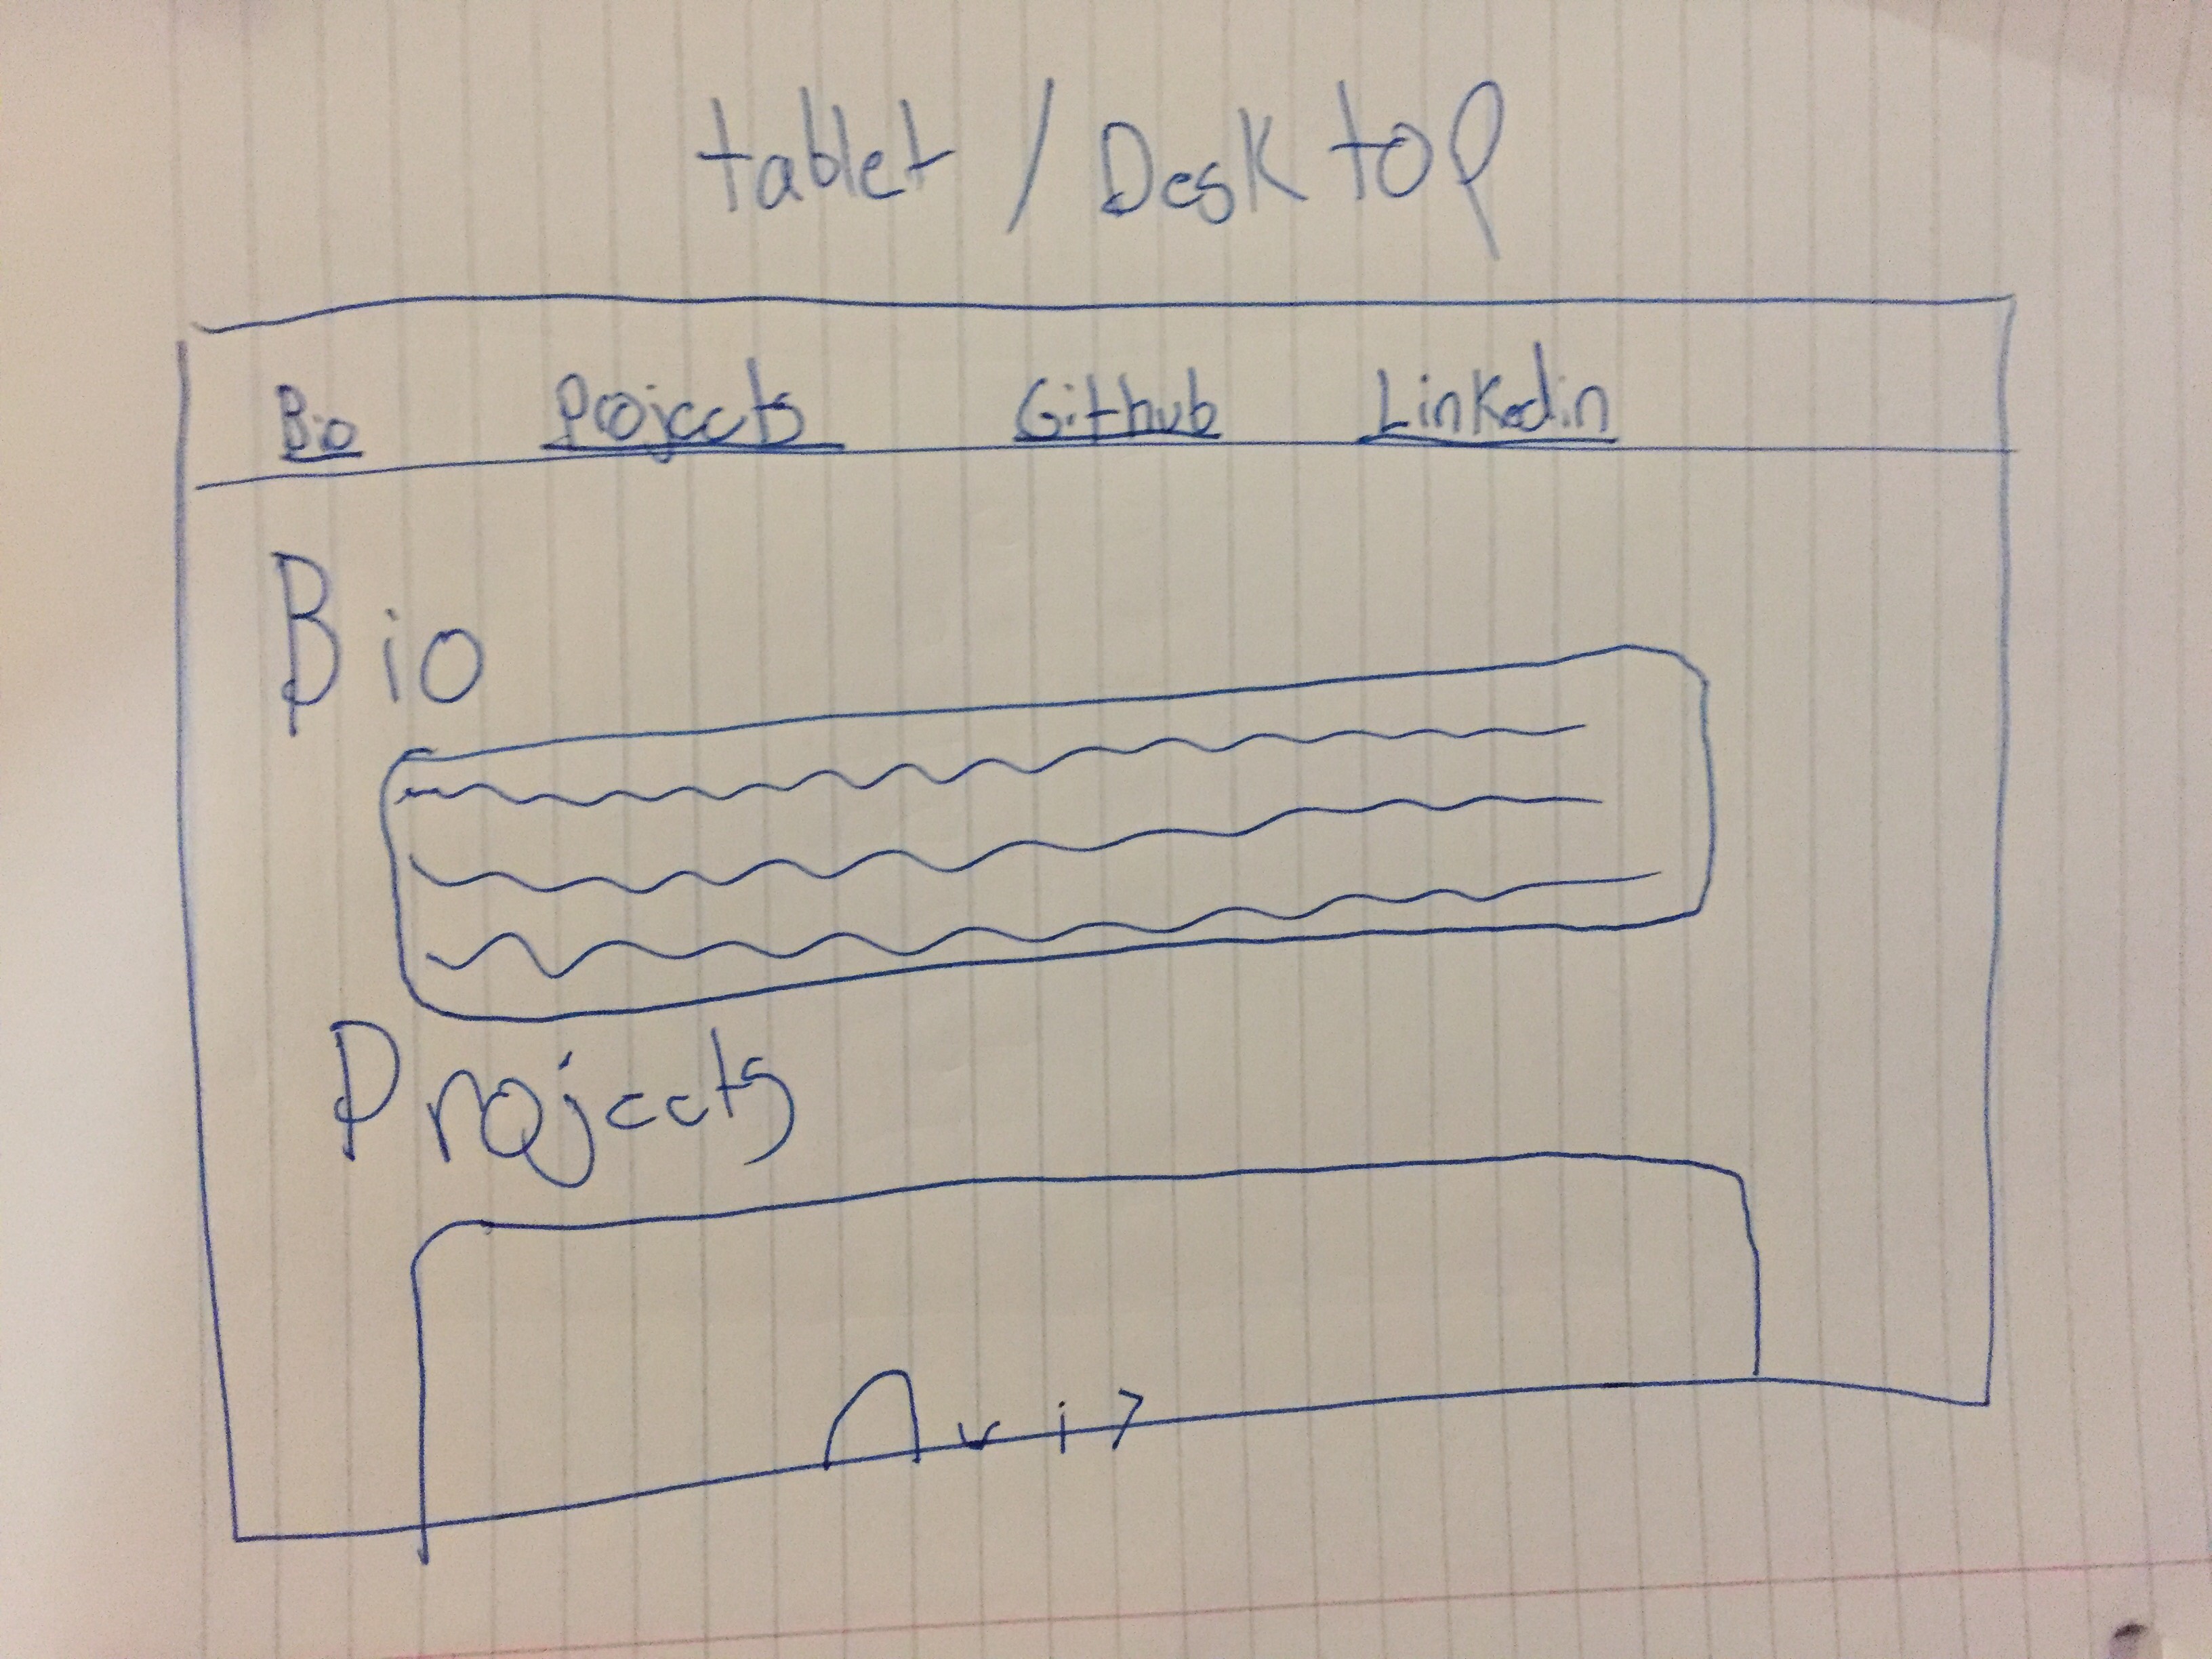 tablet / Desktop
Bio Pojects Github Linkedin
Bio
Projects